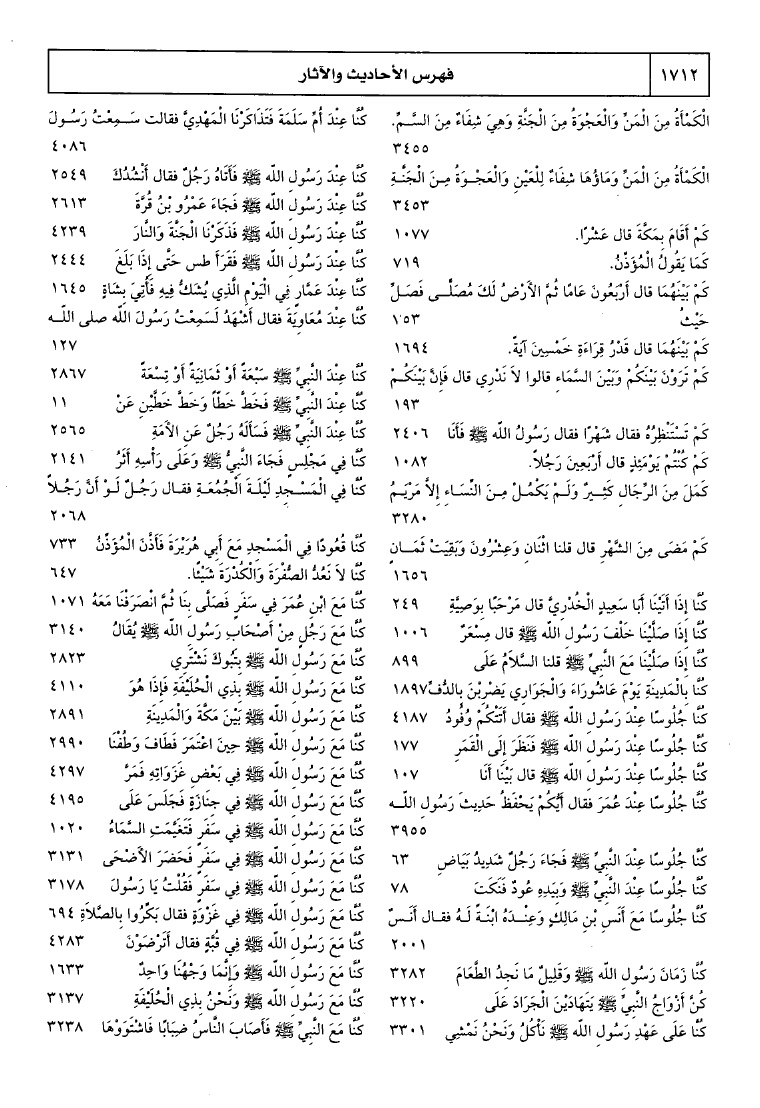 ١٧١٢
فهرس الأحاديث والآثار
الْكَمْأَةُ مِنَ الْمَنِّ وَالْعَجْوَةُ مِنَ الْجَنَّةِ وَهِيَ شِفَاءٌ مِنَ السَّمِّ.
٣٤٥٥
الْكَمْأَةُ مِنَ الْمَنِّ وَمَاؤُهَا شِفَاءٌ لِلْعَيْنِ وَالْعَجْـوَةُ مِـنَ الْجَنَّـةِ
٣٤٥٣
كَمْ أَقَامَ بِمَكَّةَ قال عَشْرًا. ١٠٧٧
كَمَا يَقُولُ الْمُؤَذِّنُ. ٧١٩
كَمْ بَيْنَهُمَا قال أَرْبَعُونَ عَامًا ثُمَّ الأَرْضُ لَكَ مُصَلًّـى فَصَلِّ
حَيْثُ ٧٥٣
كَمْ بَيْنَهُمَا قال قَدْرُ قِرَاءَةِ خَمْسِينَ آيَةً. ١٦٩٤
كَمْ تَرَوْنَ بَيْنَكُمْ وَبَيْنَ السَّمَاءِ قالوا لاَ نَدْرِي قال فَإِنَّ بَيْنَكُـمْ
١٩٣
كَمْ تَسْتَنْظِرُهُ فقال شَهْرًا فقال رَسُولُ اللَّه ﷺ فَأَنَا ٢٤٠٦
كَمْ كُنْتُمْ يَوْمَئِذٍ قال أَرْبَعِينَ رَجُلاً. ١٠٨٢
كَمَلَ مِنَ الرِّجَالِ كَثِيـرٌ وَلَـمْ يَكْمُـلْ مِـنَ النِّسَـاءِ إِلاَّ مَرْيَـمُ
٣٢٨٠
كَمْ مَضَى مِنَ الشَّهْرِ قال قلنا اثْنَانِ وَعِشْرُونَ وَبَقِيَتْ ثَمَـانٍ
١٦٥٦
كُنَّا إِذَا أَتَيْنَا أَبَا سَعِيدٍ الْخُدْرِيَّ قال مَرْحَبًا بِوَصِيَّةِ ٢٤٩
كُنَّا إِذَا صَلَّيْنَا خَلْفَ رَسُولِ اللَّه ﷺ قال مِسْعَرٌ ١٠٠٦
كُنَّا إِذَا صَلَّيْنَا مَعَ النَّبِيِّ ﷺ قلنا السَّلاَمُ عَلَى ٨٩٩
كُنَّا بِالْمَدِينَةِ يَوْمَ عَاشُورَاءَ وَالْجَوَارِي يَضْرِبْنَ بِالدُّفِّ ١٨٩٧
كُنَّا جُلُوسًا عِنْدَ رَسُولِ اللَّه ﷺ فقال أَتَتْكُمْ وُفُودُ ٤١٨٧
كُنَّا جُلُوسًا عِنْدَ رَسُولِ اللَّه ﷺ فَنَظَرَ إِلَى الْقَمَرِ ١٧٧
كُنَّا جُلُوسًا عِنْدَ رَسُولِ اللَّه ﷺ قال بَيْنَا أَنَا ١٠٧
كُنَّا جُلُوسًا عِنْدَ عُمَرَ فقال أَيُّكُمْ يَحْفَظُ حَدِيثَ رَسُولِ اللَّـه
٣٩٥٥
كُنَّا جُلُوسًا عِنْدَ النَّبِيِّ ﷺ فَجَاءَ رَجُلٌ شَدِيدُ بَيَاضِ ٦٣
كُنَّا جُلُوسًا عِنْدَ النَّبِيِّ ﷺ وَبِيَدِهِ عُودٌ فَنَكَتَ ٧٨
كُنَّا جُلُوسًا مَعَ أَنَسِ بْنِ مَالِكٍ وَعِنْـدَهُ ابْنَـةٌ لَـهُ فقـال أَنَـسٌ
٢٠٠١
كُنَّا زَمَانَ رَسُولِ اللَّه ﷺ وَقَلِيلٌ مَا نَجِدُ الطَّعَامَ ٣٢٨٢
كُنَّ أَزْوَاجُ النَّبِيِّ ﷺ يَتَهَادَيْنَ الْجَرَادَ عَلَى ٣٢٢٠
كُنَّا عَلَى عَهْدِ رَسُولِ اللَّه ﷺ نَأْكُلُ وَنَحْنُ نَمْشِي ٣٣٠١
كُنَّا عِنْدَ أُمِّ سَلَمَةَ فَتَذَاكَرْنَا الْمَهْدِيَّ فقالت سَـمِعْتُ رَسُـولَ
٤٠٨٦
كُنَّا عِنْدَ رَسُولِ اللَّه ﷺ فَأَتَاهُ رَجُلٌ فقال أَنْشُدُكَ ٢٥٤٩
كُنَّا عِنْدَ رَسُولِ اللَّه ﷺ فَجَاءَ عَمْرُو بْنُ قُرَّةَ ٢٦١٣
كُنَّا عِنْدَ رَسُولِ اللَّه ﷺ فَذَكَرْنَا الْجَنَّةَ وَالنَّارَ ٤٢٣٩
كُنَّا عِنْدَ رَسُولِ اللَّه ﷺ فَقَرَأَ طس حَتَّى إِذَا بَلَغَ ٢٤٤٤
كُنَّا عِنْدَ عَمَّارٍ فِي الْيَوْمِ الَّذِي يُشَكُّ فِيهِ فَأُتِيَ بِشَاةٍ ١٦٤٥
كُنَّا عِنْدَ مُعَاوِيَةَ فقال أَشْهَدُ لَسَمِعْتُ رَسُولَ اللَّه صلى اللَّـه
١٢٧
كُنَّا عِنْدَ النَّبِيِّ ﷺ سَبْعَةً أَوْ ثَمَانِيَةً أَوْ تِسْعَةً ٢٨٦٧
كُنَّا عِنْدَ النَّبِيِّ ﷺ فَخَطَّ خَطًّا وَخَطَّ خَطَّيْنِ عَنْ ١١
كُنَّا عِنْدَ النَّبِيِّ ﷺ فَسَأَلَهُ رَجُلٌ عَنِ الأَمَةِ ٢٥٦٥
كُنَّا فِي مَجْلِسٍ فَجَاءَ النَّبِيُّ ﷺ وَعَلَى رَأْسِهِ أَثَرُ ٢١٤١
كُنَّا فِي الْمَسْـجِدِ لَيْلَـةَ الْجُمُعَـةِ فقـال رَجُـلٌ لَـوْ أَنَّ رَجُـلاً
٢٠٦٨
كُنَّا قُعُودًا فِي الْمَسْجِدِ مَعَ أَبِي هُرَيْرَةَ فَأَذَّنَ الْمُؤَذِّنُ ٧٣٣
كُنَّا لاَ نَعُدُّ الصُّفْرَةَ وَالْكُدْرَةَ شَيْئًا. ٦٤٧
كُنَّا مَعَ ابْنِ عُمَرَ فِي سَفَرٍ فَصَلَّى بِنَا ثُمَّ انْصَرَفْنَا مَعَهُ ١٠٧١
كُنَّا مَعَ رَجُلٍ مِنْ أَصْحَابِ رَسُولِ اللَّه ﷺ يُقَالُ ٣١٤٠
كُنَّا مَعَ رَسُولِ اللَّه ﷺ بِتَبُوكَ نَشْتَرِي ٢٨٢٣
كُنَّا مَعَ رَسُولِ اللَّه ﷺ بِذِي الْحُلَيْفَةِ فَإِذَا هُوَ ٤١١٠
كُنَّا مَعَ رَسُولِ اللَّه ﷺ بَيْنَ مَكَّةَ وَالْمَدِينَةِ ٢٨٩١
كُنَّا مَعَ رَسُولِ اللَّه ﷺ حِينَ اعْتَمَرَ فَطَافَ وَطُفْنَا ٢٩٩٠
كُنَّا مَعَ رَسُولِ اللَّه ﷺ فِي بَعْضِ غَزَوَاتِهِ فَمَرَّ ٤٢٩٧
كُنَّا مَعَ رَسُولِ اللَّه ﷺ فِي جِنَازَةٍ فَجَلَسَ عَلَى ٤١٩٥
كُنَّا مَعَ رَسُولِ اللَّه ﷺ فِي سَفَرٍ فَتَغَيَّمَتِ السَّمَاءُ ١٠٢٠
كُنَّا مَعَ رَسُولِ اللَّه ﷺ فِي سَفَرٍ فَحَضَرَ الأَضْحَى ٣١٣١
كُنَّا مَعَ رَسُولِ اللَّه ﷺ فِي سَفَرٍ فَقُلْتُ يَا رَسُولَ ٣١٧٨
كُنَّا مَعَ رَسُولِ اللَّه ﷺ فِي غَزْوَةٍ فقال بَكِّرُوا بِالصَّلاَةِ ٦٩٤
كُنَّا مَعَ رَسُولِ اللَّه ﷺ فِي قُبَّةٍ فقال أَتَرْضَوْنَ ٤٢٨٣
كُنَّا مَعَ رَسُولِ اللَّه ﷺ وَإِنَّمَا وَجْهُنَا وَاحِدٌ ١٦٣٣
كُنَّا مَعَ رَسُولِ اللَّه ﷺ وَنَحْنُ بِذِي الْحُلَيْفَةِ ٣١٣٧
كُنَّا مَعَ النَّبِيِّ ﷺ فَأَصَابَ النَّاسُ ضِبَابًا فَاشْتَوَوْهَا ٣٢٣٨